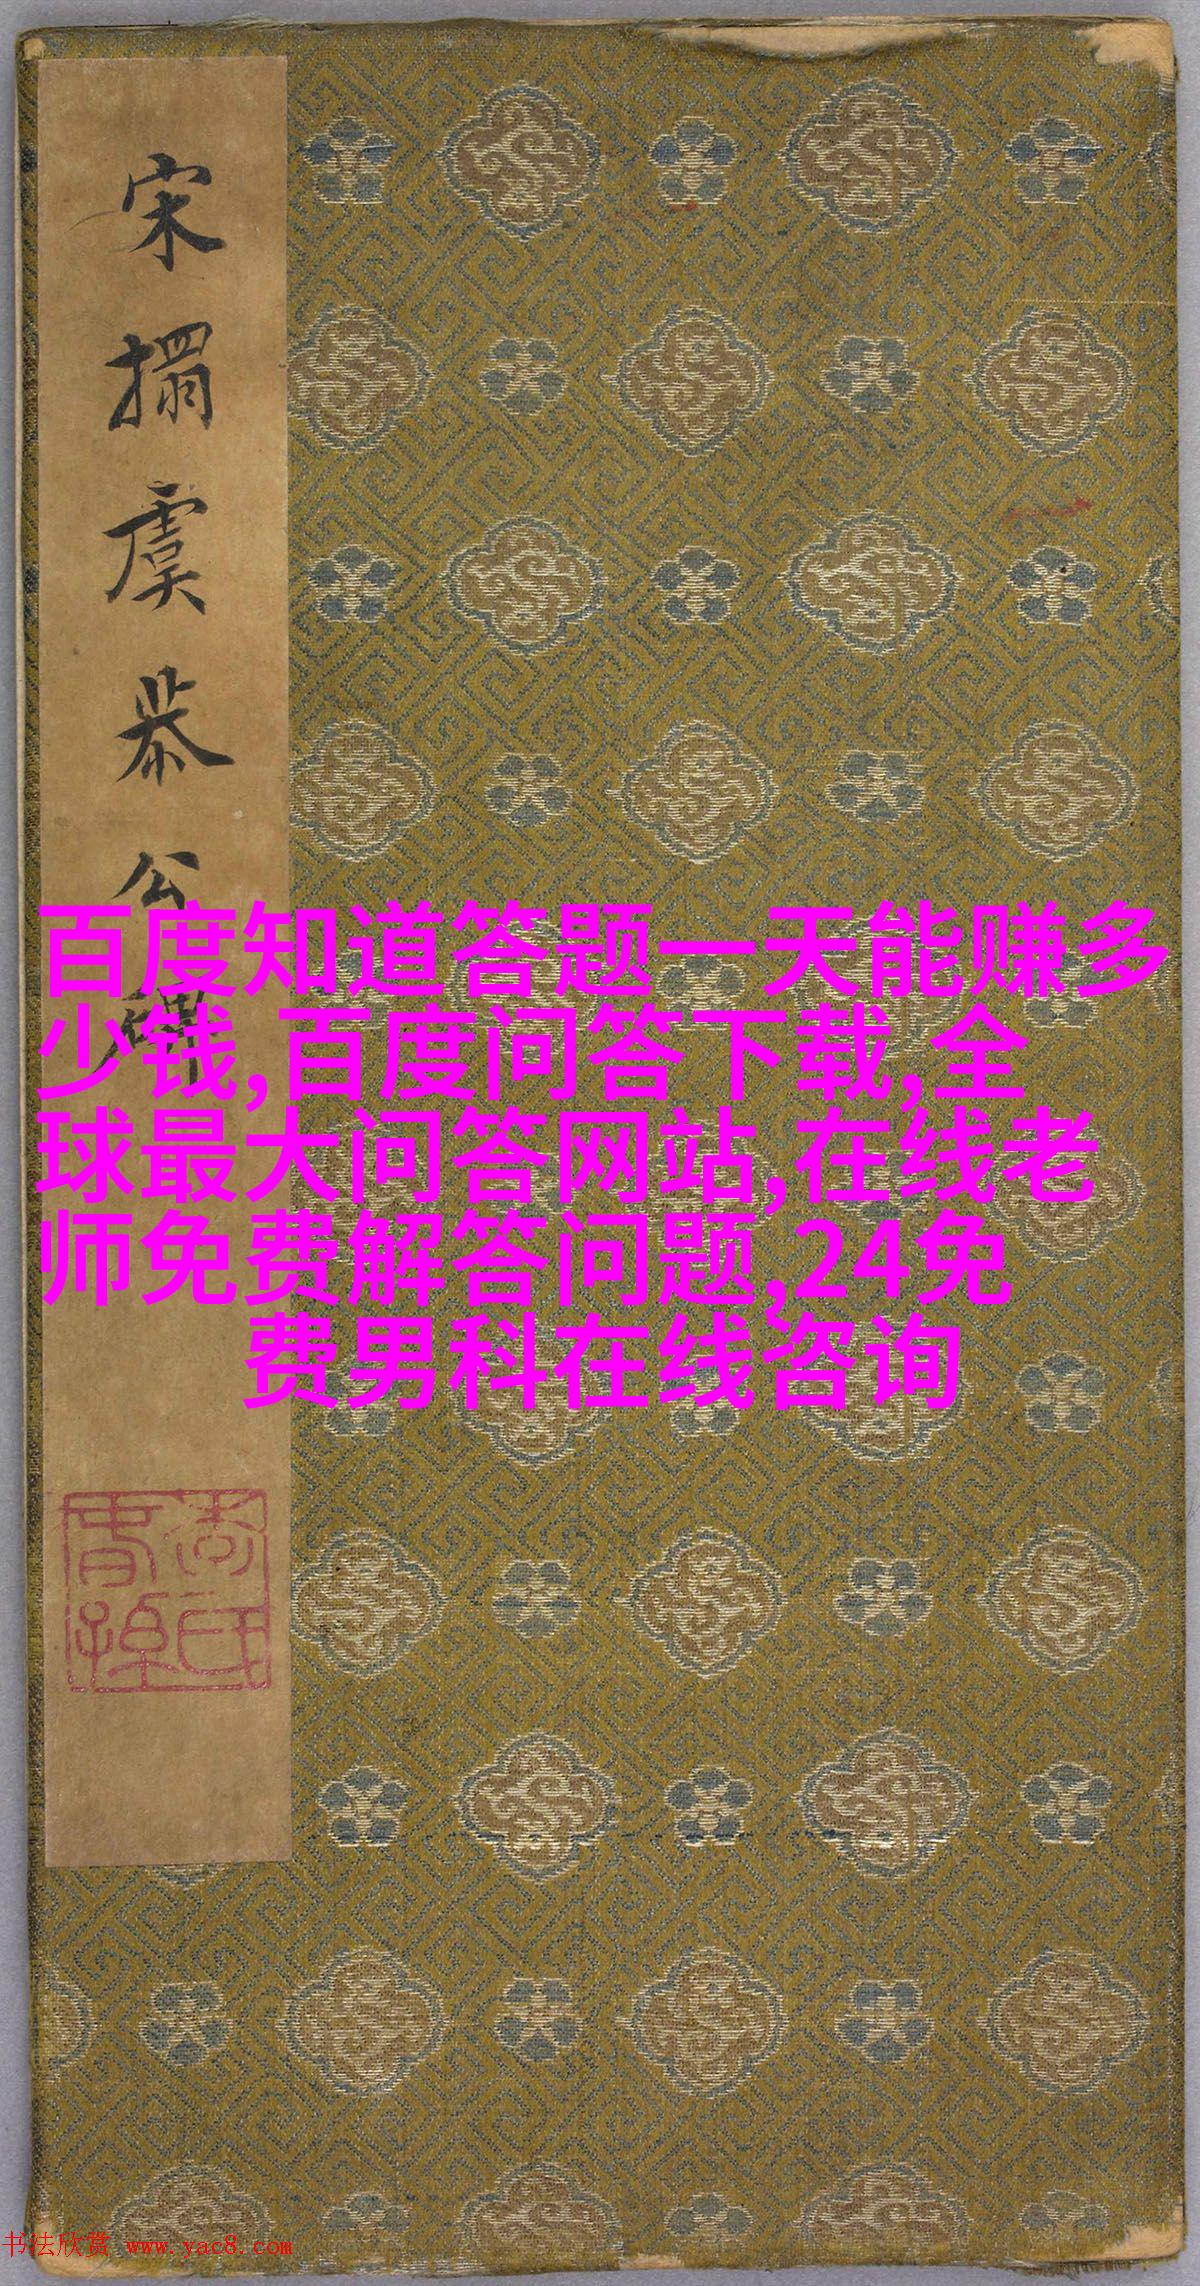 宋搨虞恭公碑
百度知道答题一天能赚多
少钱,百度问答下载,全
球最大问答网站,在线老
师免费解答问题,24免
费男科在线咨询
书法欣赏 www.yac8.com